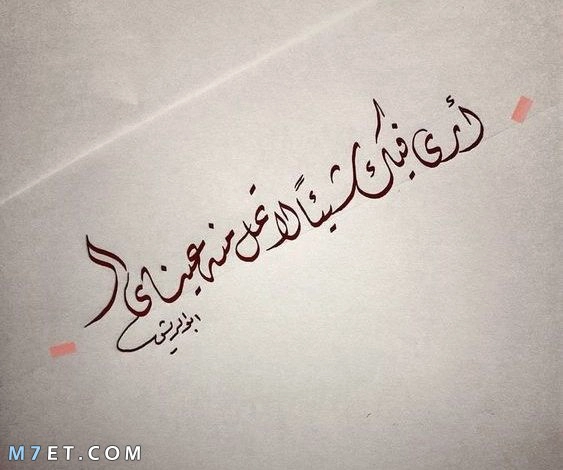 أرى فيك شيئاً لا تمل منه عيناي
M7ET.COM